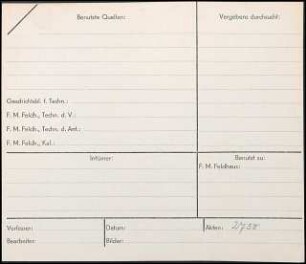 Benutzte Quellen:
Vergebens durchsucht:
Geschichtsbl. f. Techn.:
F. M. Feldh., Techn. d. V.:
F. M. Feldh., Techn. d. Ant.:
F. M. Feldh., Kal.:
Irrtümer:
Benutzt zu:
F. M. Feldhaus:
Vorfasser:
Datum:
Akten:
Bearbeiter:
Bilder: